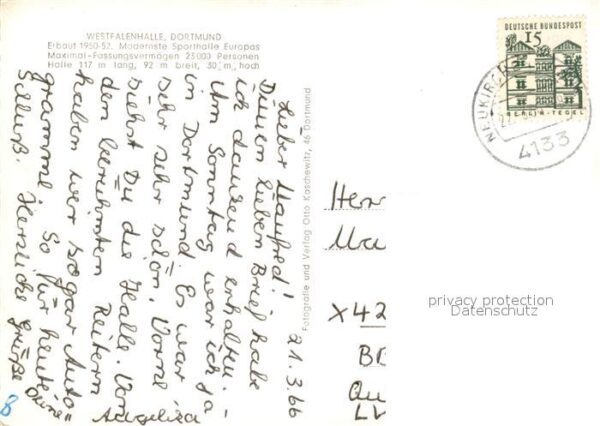 WESTFALENHALLE, DORTMUND
Erbaut 1950-52. Modernste Sporthalle Europas
Maximal-Fassungsvermögen 23000 Personen
Halle 117 m lang, 92 m breit, 30 m hoch
21.3.66
Lieber Manfred!
Deinen lieben Brief habe
ich dankend erhalten.
Am Sonntag war ich ja
in Dortmund. Es war
sehr sehr schön. Vorne
siehst Du die Halle. Von
den berühmten Reitern
haben wir sogar Auto
gramme. So für heute
Schluß. Herzliche Grüße
Deine
Angelika
Fotografie und Verlag Otto Kaschewitz, 46 Dortmund
DEUTSCHE BUNDESPOST
15
BERLIN-TEGEL
NEUKIRCH
22.
4133
Herr
Ma
X42
BE
Qu
privacy protection
Datenschutz
8